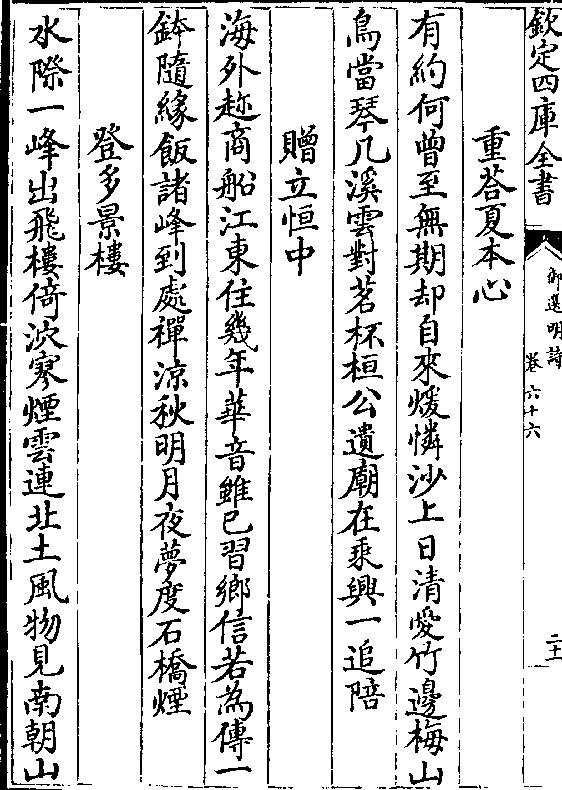 欽定四庫全書
御選明詩
卷六十六
二十一
重荅夏本心
有約何曾至無期却自來煖憐沙上日清愛竹邊梅山
鳥當琴几溪雲對茗杯桓公遺廟在乘興一追陪
贈立恒中
海外趂商船江東住幾年華音雖已習鄉信若為傳一
鉢隨緣飯諸峰到處禪涼秋明月夜夢度石橋煙
登多景樓
水際一峰出飛樓倚泬寥煙雲連北土風物見南朝山